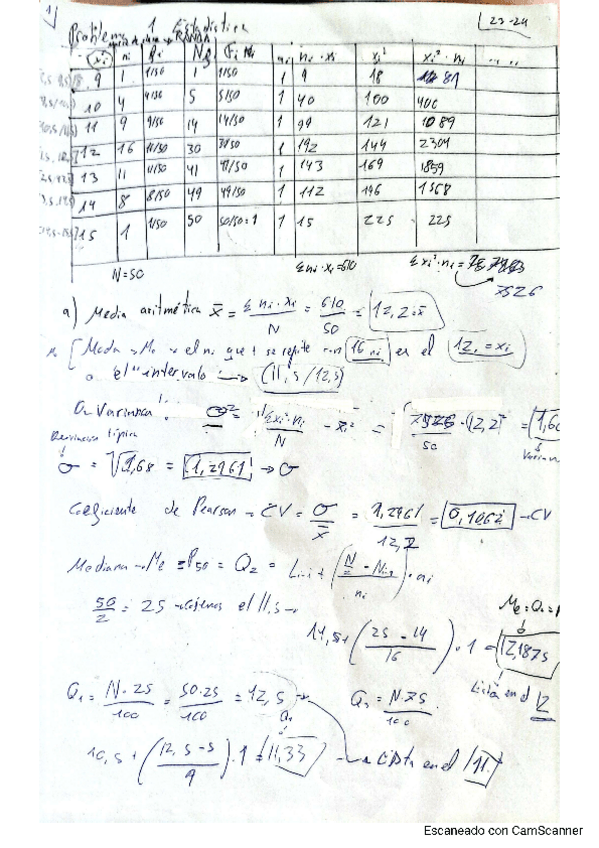 1)
Problema 1 Estadística
23-24
xi ni fi Ni Fi ai ni · xi xi² xi² · ni ....
9 1 1/50 1 1/50 1 9 18 81
10 4 4/50 5 5/50 1 40 100 400
11 9 9/50 14 14/50 1 99 121 1089
12 16 16/50 30 30/50 1 192 144 2304
13 11 11/50 41 41/50 1 143 169 1859
14 8 8/50 49 49/50 1 112 196 1568
15 1 1/50 50 50/50=1 1 15 225 225
N=50 Σ ni · xi = 610 Σ xi² · ni =
7526
a) Media aritmética x̄ = Σ ni · xi / N = 610 / 50 = 12,2 = x̄
Moda → Mo → el ni que + se repite con 16 ni es el 12 = xi
o el "intervalo → (11,5/12,5)
Varianza σ² = Σxi²·ni / N - xi² = 7526 / 50 - (12,2)² = 1,6
Desviación típica
σ = √1,68 = 1,2961 → σ
Coeficiente de Pearson → CV = σ / x̄ = 1,2961 / 12,2 = 0,1062 → CV
Mediana → Me = P50 = Q2 = Li-1 + (N/2 - Ni-1 / ni) · ai
50/2 = 25 → cojemos el 11,5 →
Me = Q2 =
11,5 + (25 - 14 / 16) · 1 = 12,1875
Está en el 12
Q1 = N · 25 / 100 = 50 · 25 / 100 = 12,5 → Q3 = N · 75 / 100
Q1
10,5 + (12,5 - 5 / 9) · 1 = 11,33 → Está en el 11
Escaneado con CamScanner